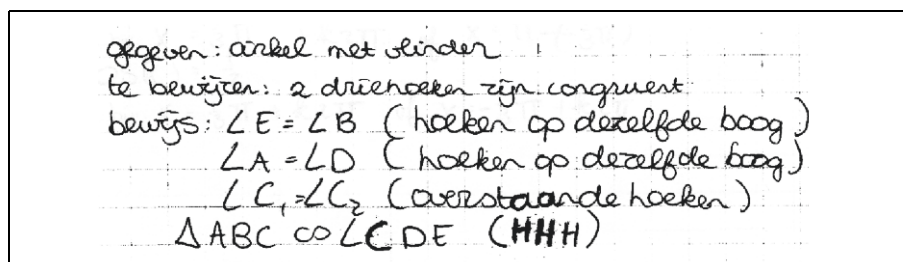 gegeven: cirkel met vlinder
te bewijzen: 2 driehoeken zijn congruent
bewijs: ∠E = ∠B (hoeken op dezelfde boog)
∠A = ∠D (hoeken op dezelfde boog)
∠C₁ = ∠C₂ (overstaande hoeken)
△ABC ∞ ∠CDE (HHH)